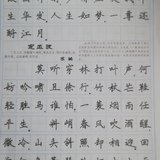 生华发人生如梦一尊还
酹江月
定风波
苏轼
莫听穿林打叶声何
妨吟啸且徐行竹杖芒鞋
轻胜马谁怕一蓑烟雨任
平生料峭春风吹酒醒
微冷山头斜照却相迎